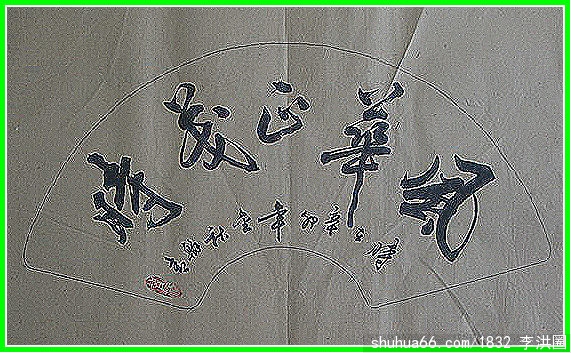 風華正茂時
辛卯年金秋
shuhua66.com/1832 李洪